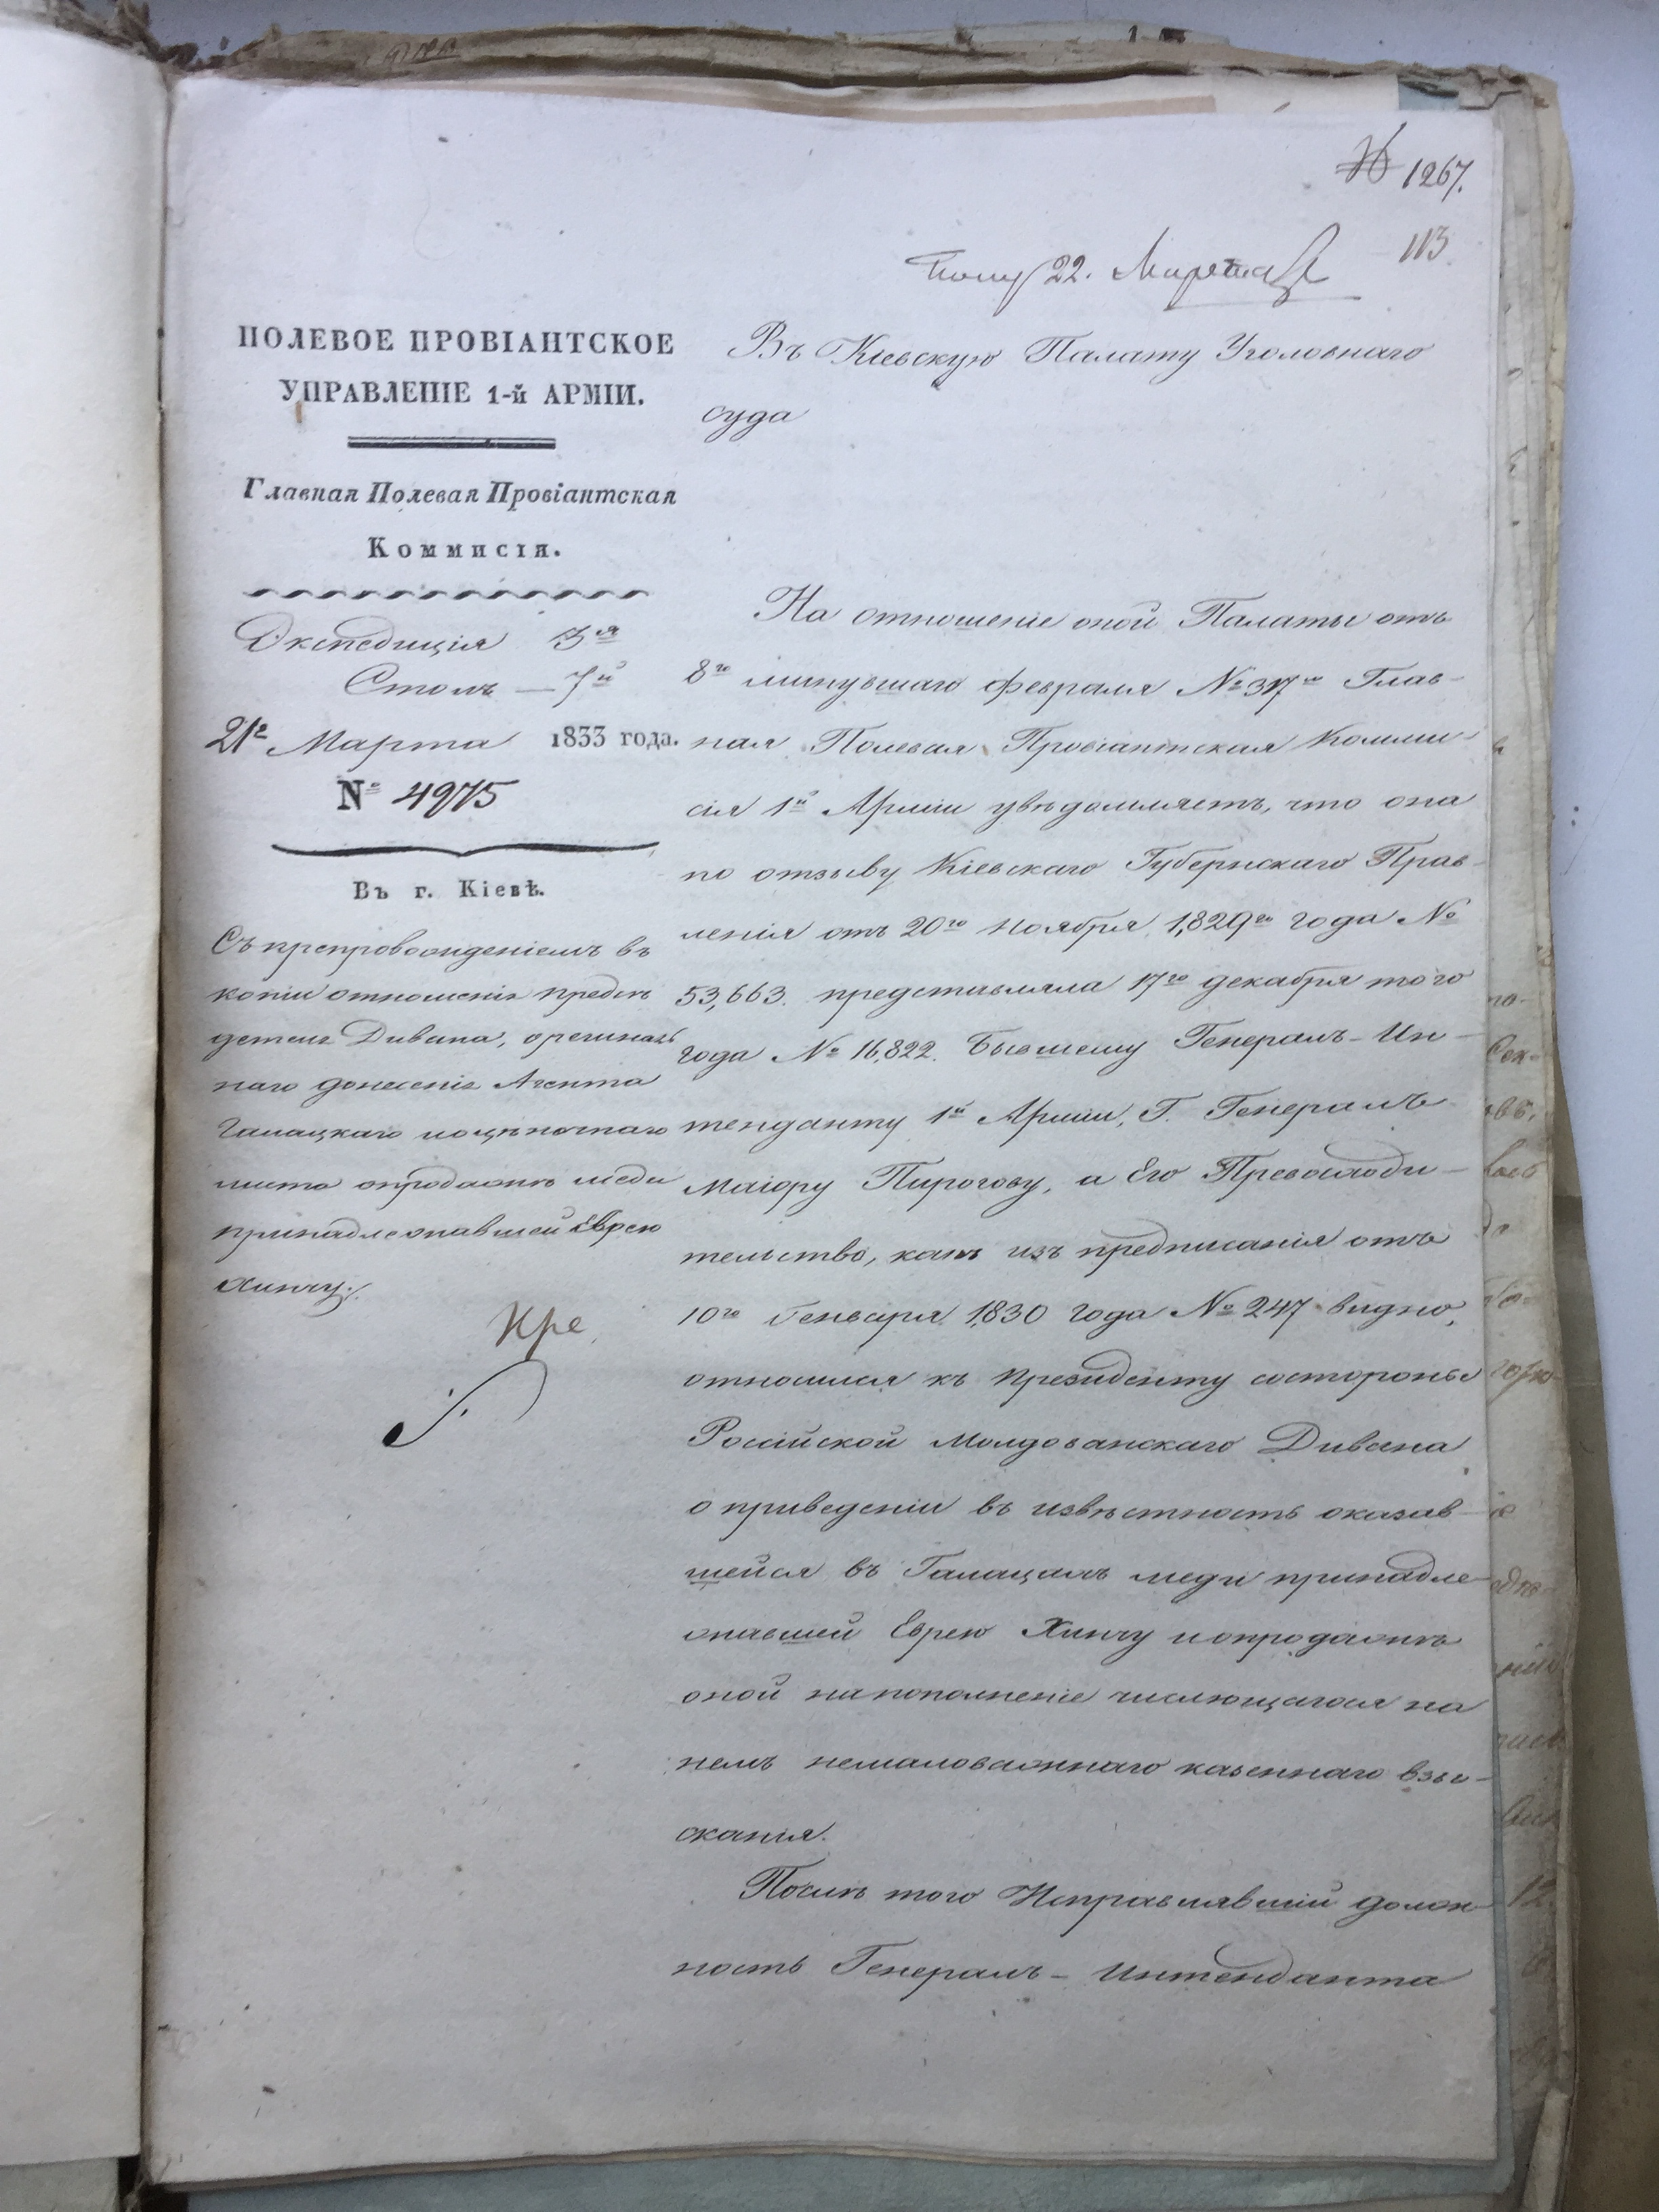 № 1267.
113
Полу 22. Марта
ПОЛЕВОЕ ПРОВІАНТСКОЕ
УПРАВЛЕНІЕ 1-й АРМІИ.
Главная Полевая Провіантская
Коммисія.
Экспедиція 3я
Столъ — 7й
21го Марта 1833 года.
№ 4975
Въ г. Кіевѣ.
Съ препровожденіемъ въ
копіи отношенія предсѣ
дателя Дивана, оригиналь
наго донесенія Агента
Галацкаго и оцѣночнаго
листа опродажѣ меди
принадлежавшей Еврею
Хинчу.
Въ Кіевскую Палату Уголовнаго
суда
На отношеніе оной Палаты отъ
8го минувшаго февраля № 317м Глав-
ная Полевая Провіантская Комми-
сія 1й Арміи увѣдомляетъ, что она
по отзыву Кіевскаго Губернскаго Прав-
ленія отъ 20го Ноября 1829го года №
53,663. представляла 17го декабря того
года № 16,822. Бывшему Генералъ-Ин-
тенданту 1й Арміи, Г. Генералъ
Маіору Пирогову, а Его Превосходи-
тельство, какъ изъ предписанія отъ
10го Генваря 1830 года № 247 видно,
относился къ Президенту состороны
Россійской Молдованскаго Дивана
о приведеніи въ извѣстность оказав-
шейся въ Галацахъ меди принадле-
жавшей Еврею Хинчу и опродажѣ
оной на пополненіе числющагося на
немъ немаловажнаго казеннаго взы-
сканія.
Послѣ того Исправлявшій долж-
ность Генералъ-Интенданта